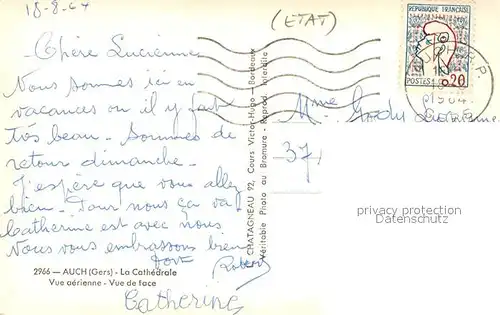 18-8-64
(ETAT)
Chère Lucienne
Nous sommes ici en
vacances ou il y fait
très beau. Sommes de
retour dimanche.
J'espère que vous allez
bien. Pour nous ça va
Catherine est avec nous
Nous vous embrassons bien
fort
Robert
Catherine
2966 — AUCH (Gers) - La Cathédrale
Vue aérienne - Vue de face
CHATAGNEAU 92, Cours Victor-Hugo - Bordeaux
Véritable Photo au Bromure - Reprod. Interdite
REPUBLIQUE FRANÇAISE
POSTES
0,20
1964
Mme
37
privacy protection
Datenschutz